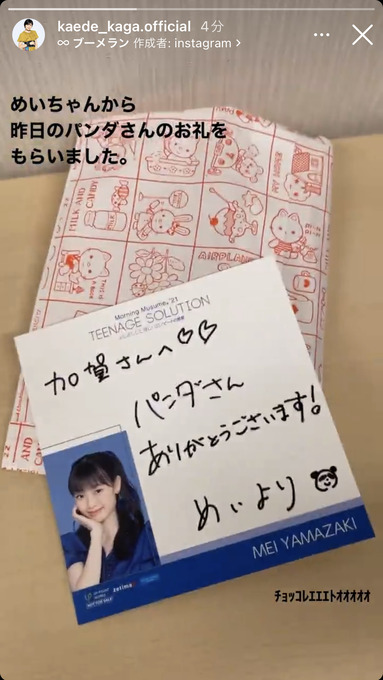 kaede_kaga.official 4分
∞ ブーメラン 作成者: instagram >
めいちゃんから
昨日のパンダさんのお礼を
もらいました。
MILK AND CANDY
AIRPLANE
Morning Musume。'21
TEENAGE SOLUTION
加賀さんへ♡♡
パンダさん
ありがとうございます!
めいより
MEI YAMAZAKI
zetima
NOT FOR SALE
ﾁｮｯｺﾚｴｴｴﾄｵｵｵｵｵ